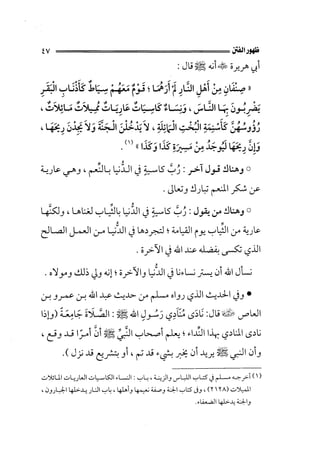 ظهور الفتن
٤٧
أبي هريرة ﷺ أنه ﷺ قال :
« صِنْفَانِ مِنْ أَهْلِ النَّارِ لَمْ أَرَهُمَا ؛ قَوْمٌ مَعَهُمْ سِيَاطٌ كَأَذْنَابِ الْبَقَرِ
يَضْرِبُونَ بِهَا النَّاسَ ، وَنِسَاءٌ كَاسِيَاتٌ عَارِيَاتٌ مُمِيلَاتٌ مَائِلَاتٌ ،
رُؤُوسُهُنَّ كَأَسْنِمَةِ الْبُخْتِ الْمَائِلَةِ ، لَا يَدْخُلْنَ الْجَنَّةَ وَلَا يَجِدْنَ رِيحَهَا ،
وَإِنَّ رِيحَهَا لَيُوجَدُ مِنْ مَسِيرَةِ كَذَا وَكَذَا » (١).
وهناك قول آخر : رُبَّ كاسيةٍ في الدُّنيا بالنِّعم ، وهي عارية
عن شكر المنعم تبارك وتعالى .
وهناك من يقول : رُبَّ كاسيةٍ في الدُّنيا بالثِّياب لغناها ، ولكنَّها
عارية من الثِّياب يوم القيامة ؛ لتجردها في الدُّنيا من العمل الصالح
الذي تكسى بفضله عند الله في الآخرة .
نسأل الله أن يستر نساءنا في الدُّنيا والآخرة ؛ إنه ولي ذلك ومولاه .
• وفي الحديث الذي رواه مسلم من حديث عبد الله بن عمرو بن
العاص قال: نَادَى مُنَادِي رَسُولِ اللهِ ﷺ : الصَّلَاةَ جَامِعَةً (وإذا
نادى المنادي بهذا النِّداء ؛ يعلم أصحاب النَّبيِّ ﷺ أنَّ أمرًا قد وقع ،
وأن النبي ﷺ يريد أن يخبر بشيء قد تم ، أو بتشريع قد نزل ) .
(١) أخرجه مسلم في كتاب اللباس والزينة ، باب : النساء الكاسيات العاريات المائلات
المميلات (٢١٢٨) ، وفي كتاب الجنة وصفة نعيمها وأهلها ، باب النار يدخلها الجبارون ،
والجنة يدخلها الضعفاء.